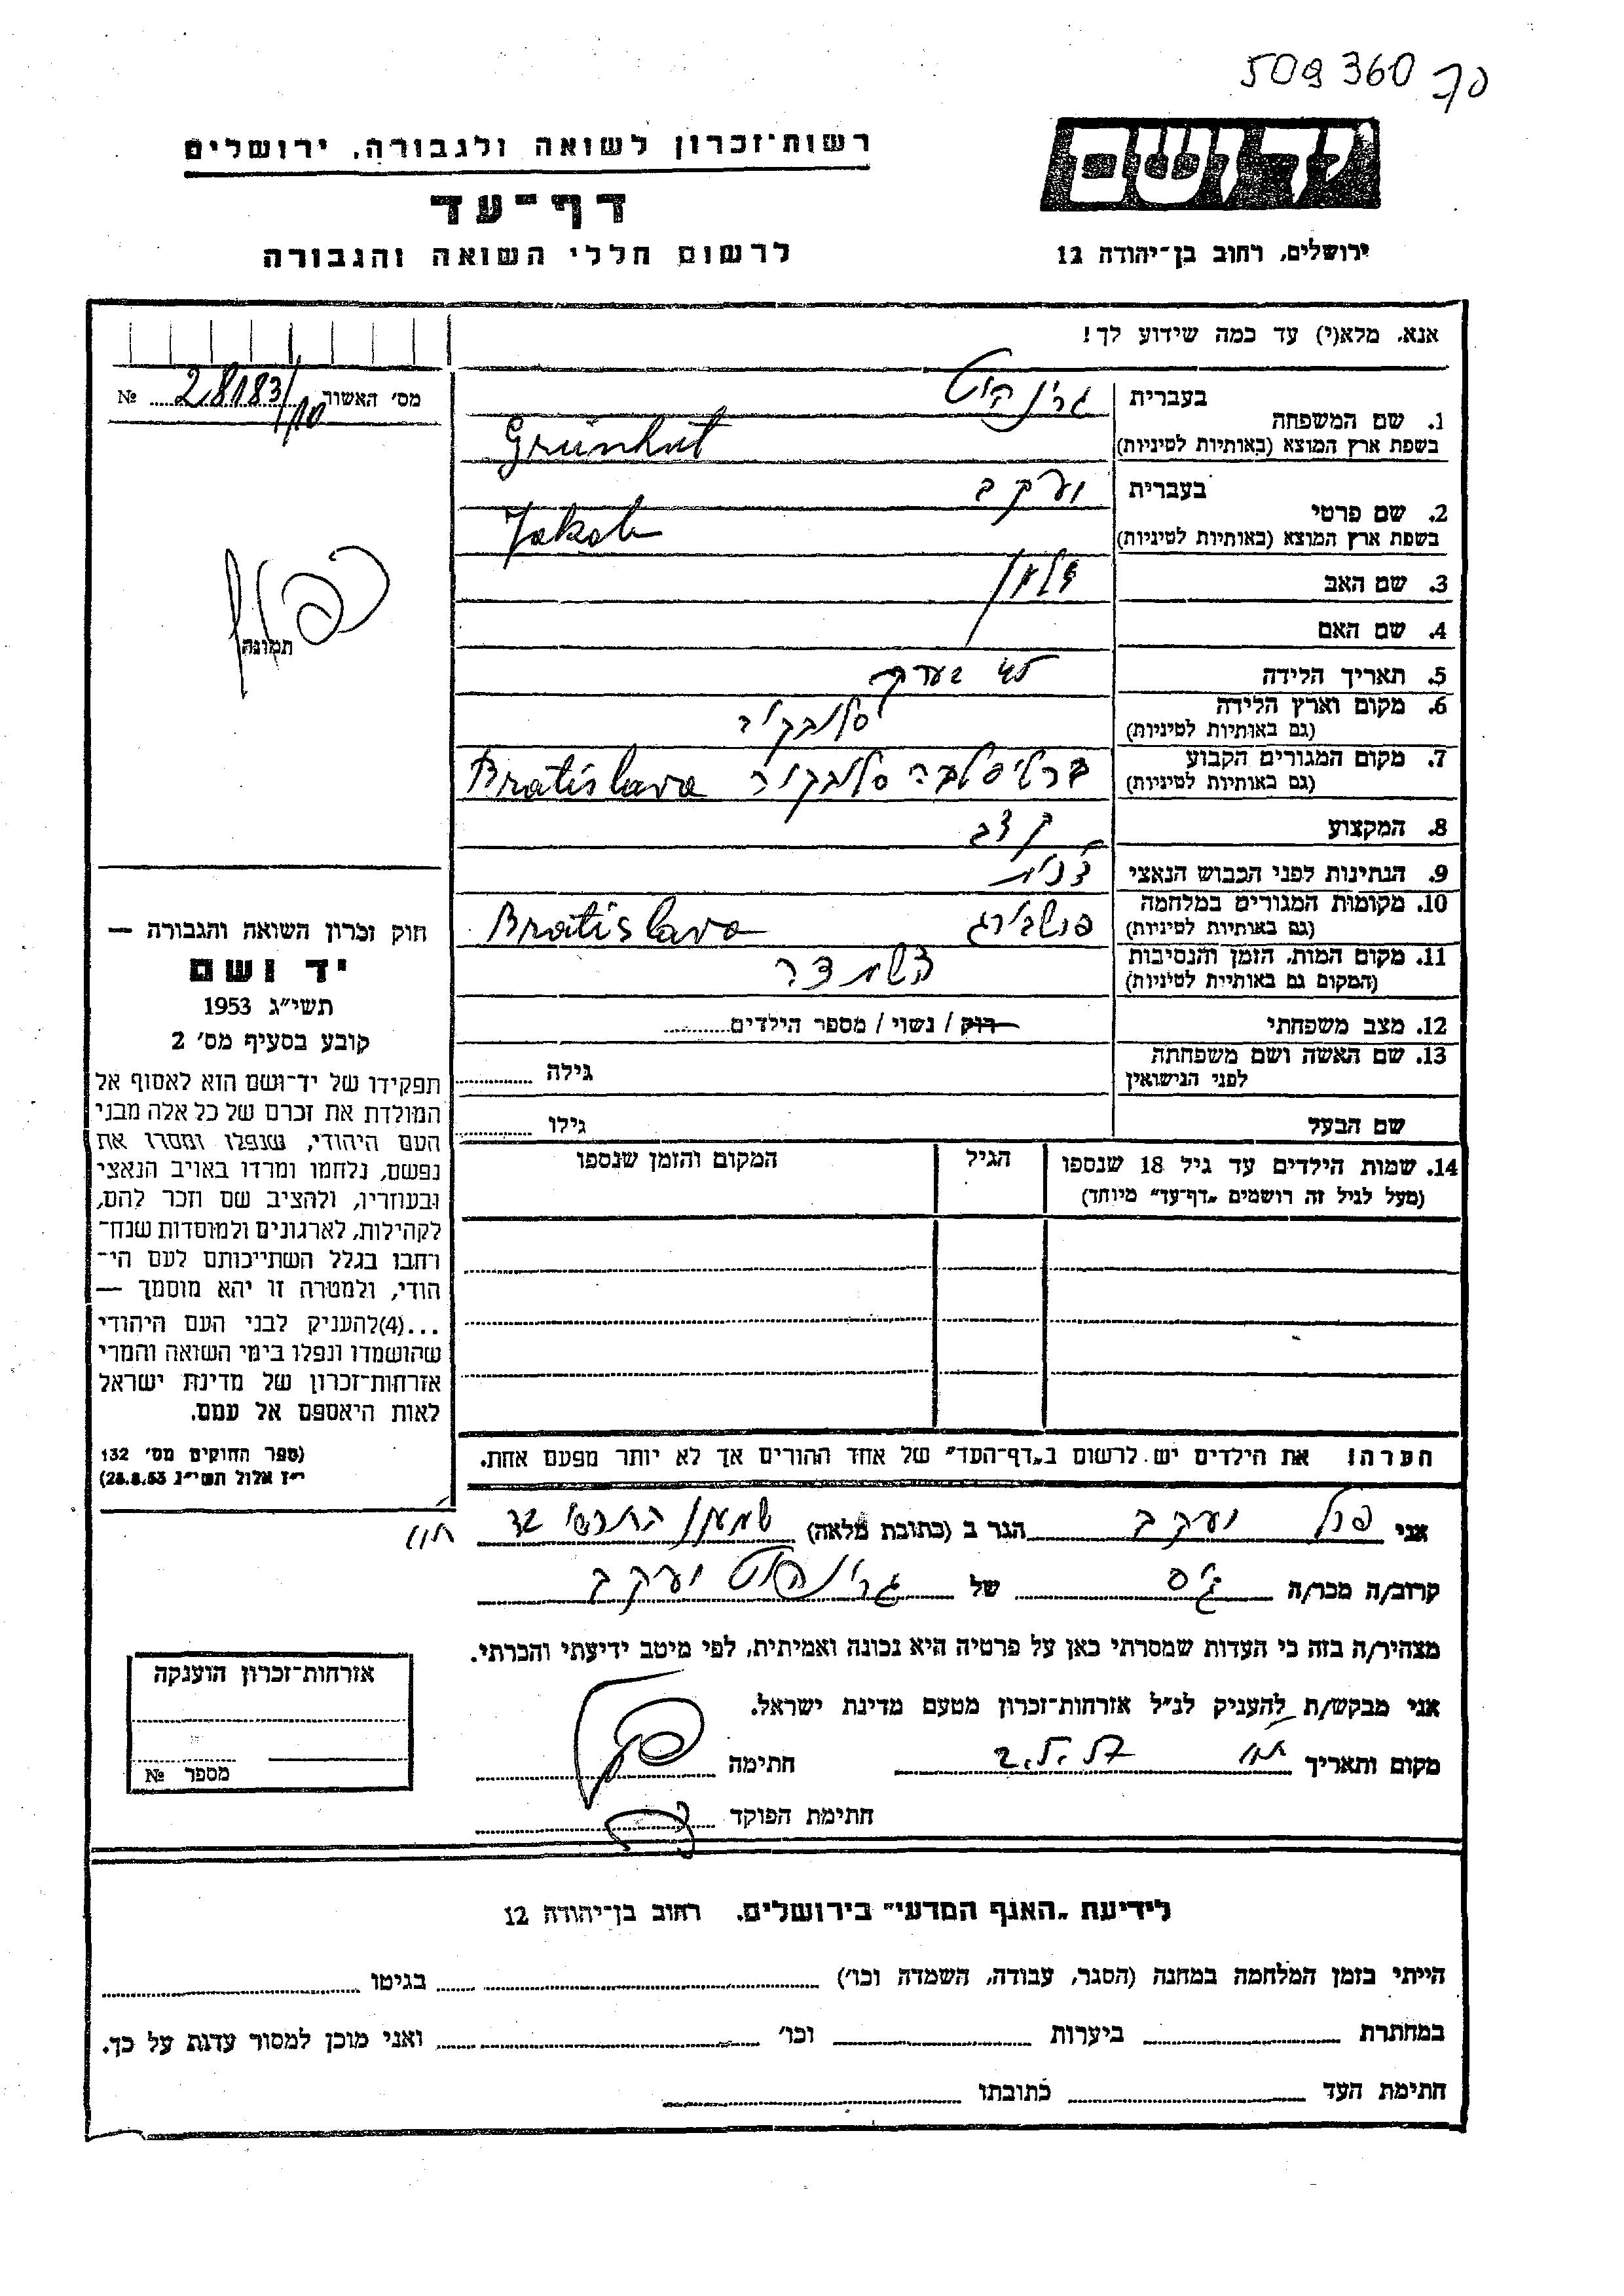 509360 פק
יד ושם
ירושלים, רחוב בן־יהודה 12
רשות־זכרון לשואה ולגבורה, ירושלים
דף־עד
לרשום חללי השואה והגבורה
אנא, מלא(י) עד כמה שידוע לך!
מס׳ האשור 28183/10 №
בעברית גרינהוט
1. שם המשפחה
בשפת ארץ המוצא (באותיות לטיניות) Grünhut
בעברית יעקב
2. שם פרטי
בשפת ארץ המוצא (באותיות לטיניות) Jakob
3. שם האב
4. שם האם
5. תאריך הלידה
6. מקום וארץ הלידה סלובקיה
(גם באותיות לטיניות)
7. מקום המגורים הקבוע ברטיסלבה סלובקיה Bratislava
(גם באותיות לטיניות)
8. המקצוע קצב
9. הנתינות לפני הכבוש הנאצי צ'כית
10. מקומות המגורים במלחמה פרשבורג Bratislava
(גם באותיות לטיניות)
11. מקום המות, הזמן והנסיבות
(המקום גם באותיות לטיניות)
12. מצב משפחתי רוק / נשוי / מספר הילדים
13. שם האשה ושם משפחתה גילה
לפני הנישואין
שם הבעל גילו
14. שמות הילדים עד גיל 18 שנספו הגיל המקום והזמן שנספו
(מעל לגיל זה רושמים „דף־עד" מיוחד)
תמונה
חוק זכרון השואה והגבורה —
יד ושם
תשי״ג 1953
קובע בסעיף מס׳ 2
תפקידו של יד־ושם הוא לאסוף אל
המולדת את זכרם של כל אלה מבני
העם היהודי, שנפלו ומסרו את
נפשם, נלחמו ומרדו באויב הנאצי
ובעוזריו, ולהציב שם וזכר להם,
לקהילות, לארגונים ולמוסדות שנח־
רחבו בגלל השתייכותם לעם הי־
הודי, ולמטרה זו יהא מוסמך —
...(4)להעניק לבני העם היהודי
שהושמדו ונפלו בימי השואה והמרי
אזרחות־זכרון של מדינת ישראל
לאות היאספם אל עמם.
(ספר החוקים מס׳ 132
י״ז אלול תשי״ג 28.8.53)
הערה! את הילדים יש לרשום ב„דף־העד" של אחד ההורים אך לא יותר מפעם אחת.
אני יעקב הגר ב (כתובת מלאה) שמעון התרסי 32 ת"א
קרוב/ה מכר/ה גיס של גרינהוט יעקב
מצהיר/ה בזה כי העדות שמסרתי כאן על פרטיה היא נכונה ואמיתית, לפי מיטב ידיעתי והכרתי.
אני מבקש/ת להעניק לנ״ל אזרחות־זכרון מטעם מדינת ישראל.
מקום ותאריך ת"א חתימה
חתימת הפוקד
אזרחות־זכרון הוענקה
מספר №
לידיעת „האגף המדעי" בירושלים, רחוב בן־יהודה 12
הייתי בזמן המלחמה במחנה (הסגר, עבודה, השמדה וכו׳) בגיטו
במחתרת ביערות וכו׳ ואני מוכן למסור עדות על כך.
חתימת העד כתובתו